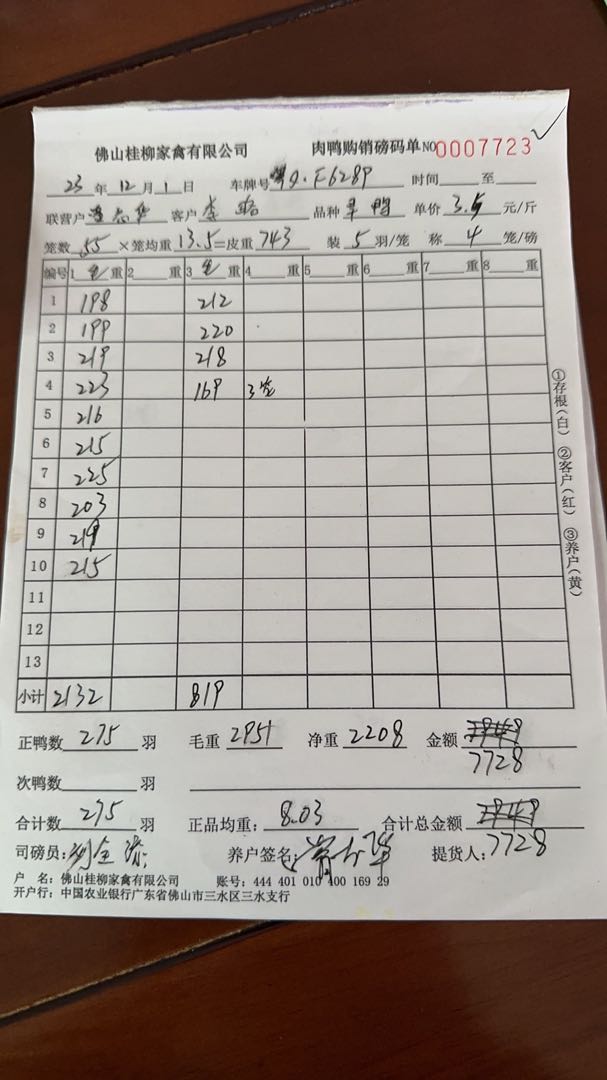 佛山桂柳家禽有限公司 肉鸭购销磅码单 NO 0007723
23 年 12 月 1 日 车牌号 F6289 时间 至
联营户 客户 李 品种 旱鸭 单价 3.5 元/斤
笼数 55 ×笼均重 13.5 =皮重 743 装 5 羽/笼 称 4 笼/磅
编号 1 毛 重 2 重 3 毛 重 4 重 5 重 6 重 7 重 8 重
1 198 212
2 199 220
3 219 218
4 223 169 3笼
5 216
6 215
7 225
8 203
9 219
10 215
11
12
13
小计 2132 819
①存根(白) ②客户(红) ③养户(黄)
正鸭数 275 羽 毛重 2951 净重 2208 金额
7728
次鸭数 羽
合计数 275 羽 正品均重: 8.03 合计总金额
司磅员: 养户签名: 提货人: 7728
户 名: 佛山桂柳家禽有限公司 账号: 444 401 010 400 169 29
开户行: 中国农业银行广东省佛山市三水区三水支行